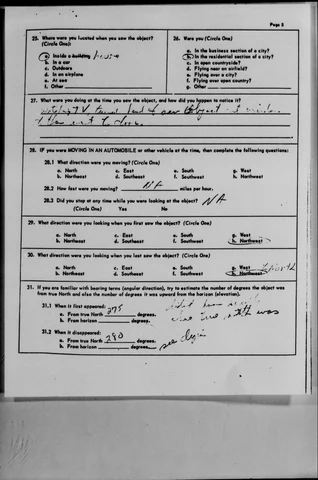 Page 5
25. Where were you located when you saw the object?
(Circle One):
a. Inside a building house
b. In a car
c. Outdoors
d. In an airplane
e. At sea
f. Other
26. Were you (Circle One)
a. In the business section of a city?
b. In the residential section of a city?
c. In open countryside?
d. Flying near an airfield?
e. Flying over a city?
f. Flying over open country?
g. Other
27. What were you doing at the time you saw the object, and how did you happen to notice it?
saw object
28. IF you were MOVING IN AN AUTOMOBILE or other vehicle at the time, then complete the following questions:
28.1 What direction were you moving? (Circle One)
a. North c. East e. South g. West
b. Northeast d. Southeast f. Southwest h. Northwest
28.2 How fast were you moving? NA miles per hour.
28.3 Did you stop at any time while you were looking at the object? NA
(Circle One) Yes No
29. What direction were you looking when you first saw the object? (Circle One)
a. North c. East e. South g. West
b. Northeast d. Southeast f. Southwest h. Northwest
30. What direction were you looking when you last saw the object? (Circle One)
a. North c. East e. South g. West North
b. Northeast d. Southeast f. Southwest h. Northwest
31. If you are familiar with bearing terms (angular direction), try to estimate the number of degrees the object was
from true North and also the number of degrees it was upward from the horizon (elevation).
31.1 When it first appeared:
a. From true North 275 degrees.
b. From horizon degrees.
true north was
31.2 When it disappeared:
a. From true North 280 degrees.
b. From horizon degrees.
see